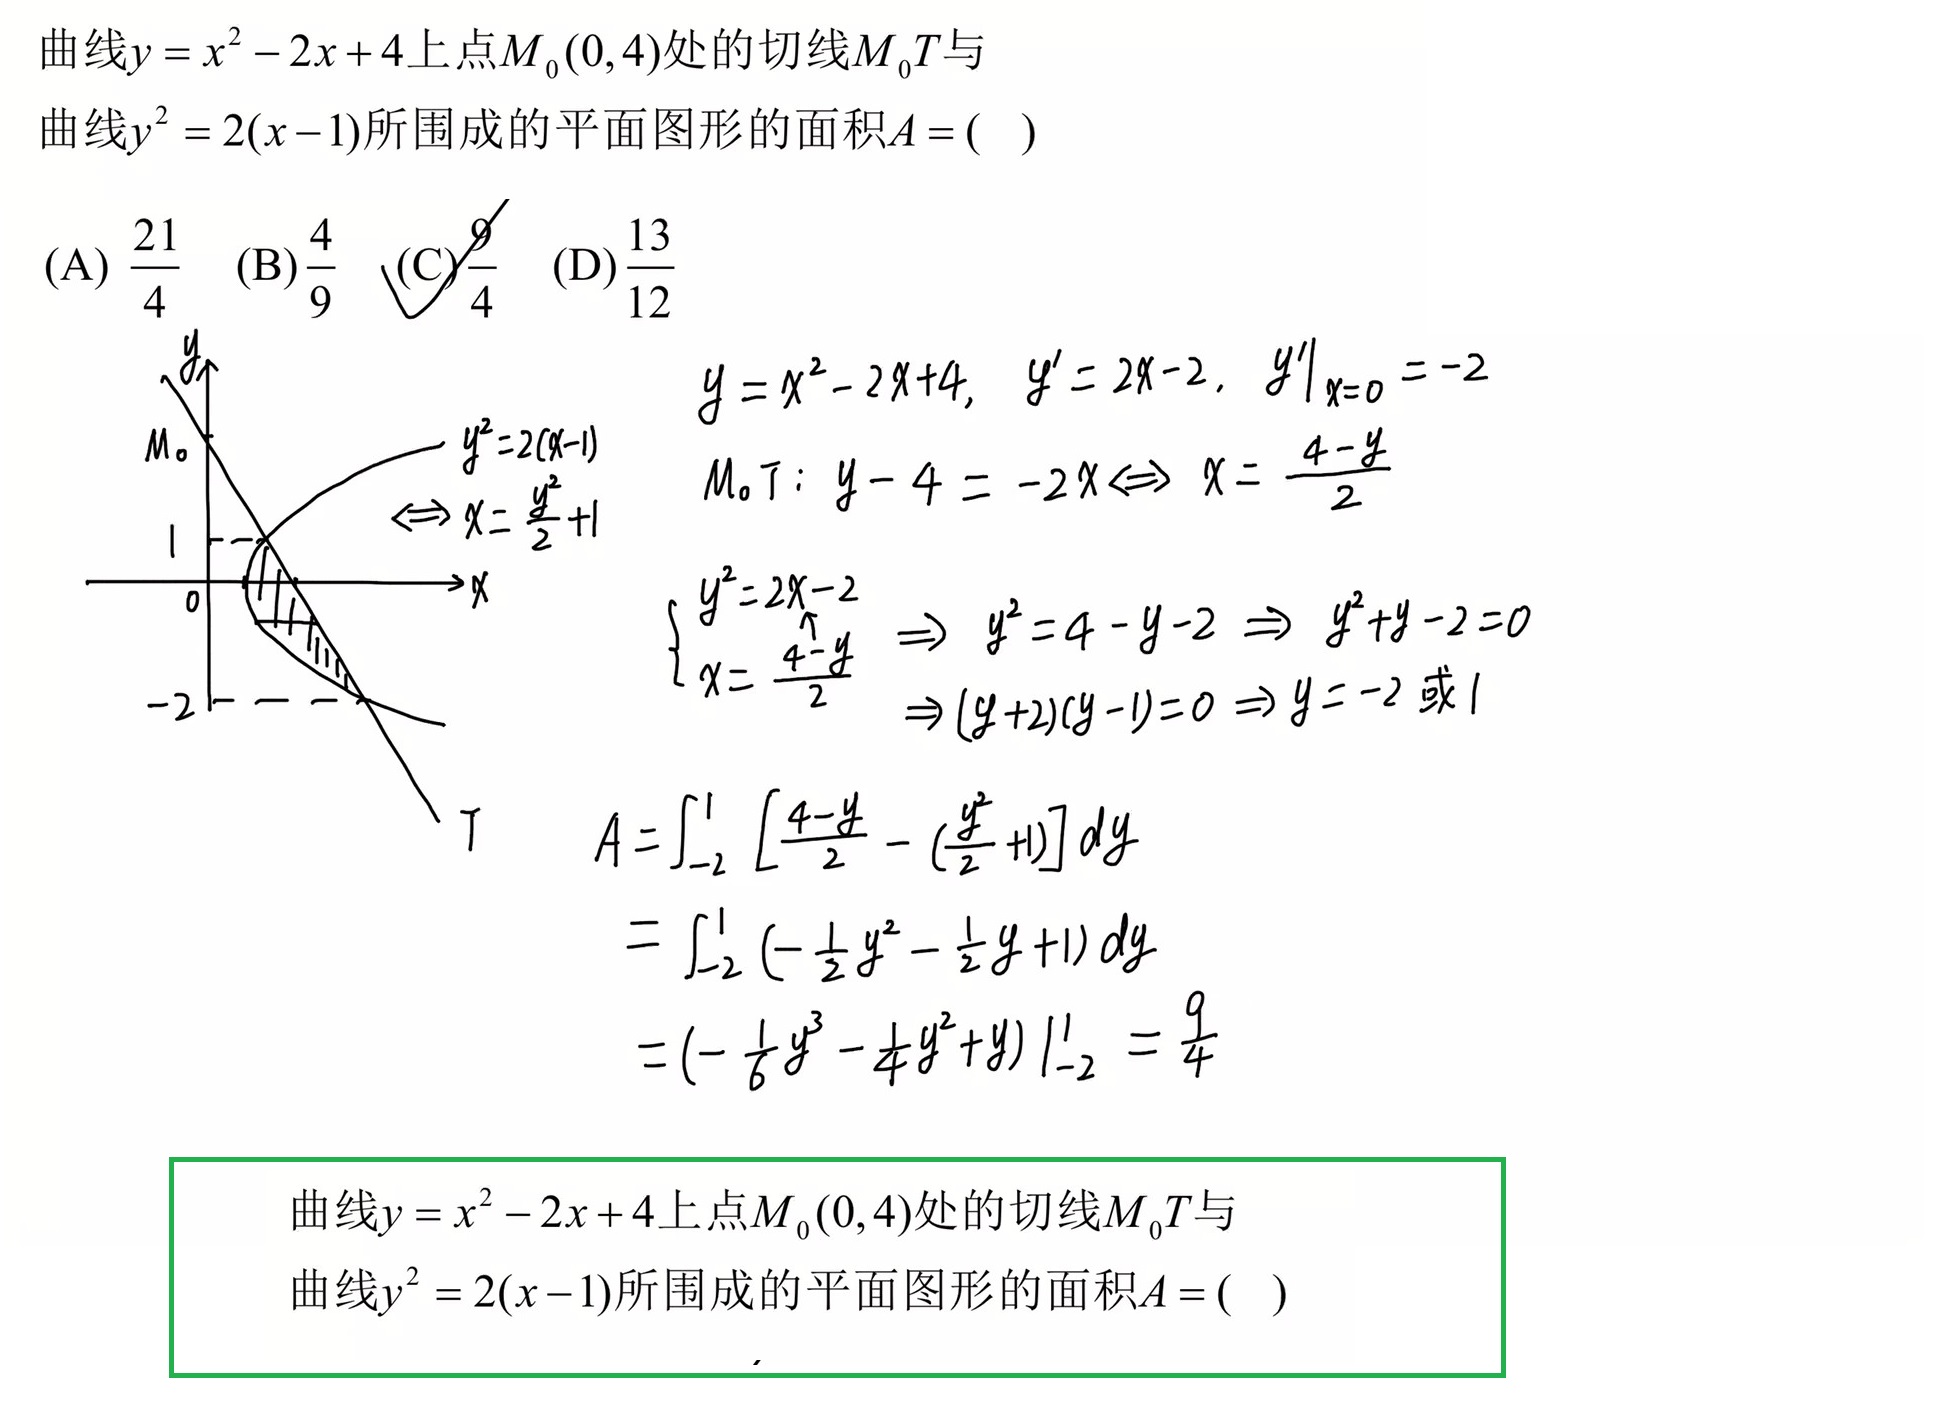 曲线y = x² − 2x + 4上点M₀(0, 4)处的切线M₀T与
曲线y² = 2(x − 1)所围成的平面图形的面积A = ( )
(A) 21/4 (B) 4/9 (C) 9/4 (D) 13/12
y
M₀
y² = 2(x−1)
⇔ x = y²/2 + 1
1
0
x
−2
T
y = x² − 2x + 4, y′ = 2x − 2, y′|ₓ₌₀ = −2
M₀T: y − 4 = −2x ⇔ x = (4−y)/2
{ y² = 2x − 2
x = (4−y)/2
⇒ y² = 4 − y − 2 ⇒ y² + y − 2 = 0
⇒ (y+2)(y−1) = 0 ⇒ y = −2 或 1
A = ∫₋₂¹ [(4−y)/2 − (y²/2 + 1)] dy
= ∫₋₂¹ (−1/2 y² − 1/2 y + 1) dy
= (−1/6 y³ − 1/4 y² + y) |₋₂¹ = 9/4
曲线y = x² − 2x + 4上点M₀(0, 4)处的切线M₀T与
曲线y² = 2(x − 1)所围成的平面图形的面积A = ( )